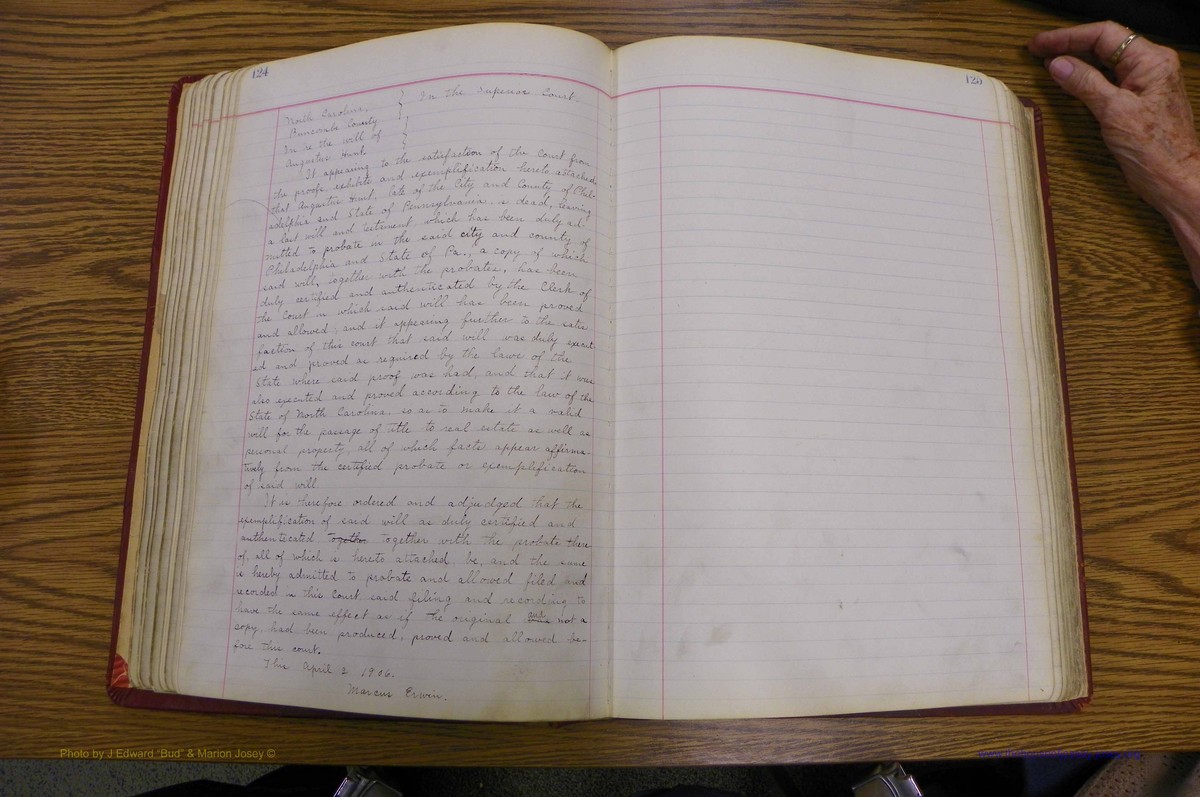 124
North Carolina, } In the Superior Court.
Buncombe County }
In re the will of }
Augustus Hunt. }
It appearing to the satisfaction of the Court from
the proofs, exhibits and exemplification hereto attached
that Augustus Hunt, late of the City and County of Phil-
adelphia and State of Pennsylvania, is dead, leaving
a last will and testament which has been duly ad-
mitted to probate in the said city and county of
Philadelphia and State of Pa., a copy of which
said will, together with the probates, has been
duly certified and authenticated by the Clerk of
the Court in which said will has been proved
and allowed; and it appearing further to the satis
faction of this court that said will was duly execut
ed and proved as required by the laws of the
State where said proof was had, and that it was
also executed and proved according to the law of the
State of North Carolina, so as to make it a valid
will for the passage of title to real estate as well as
personal property, all of which facts appear affirma-
tively from the certified probate or exemplification
of said will.
It is therefore ordered and adjudged that the
exemplification of said will as duly certified and
authenticated together together with the probate there-
of, all of which is hereto attached, be, and the same
is hereby admitted to probate and allowed filed and
recorded in this Court said filing and recording to
have the same effect as if the original and not a
copy, had been produced, proved and allowed be-
fore this court.
This April 2 1906.
Marcus Erwin.
125
Photo by J Edward "Bud" & Marion Josey ©